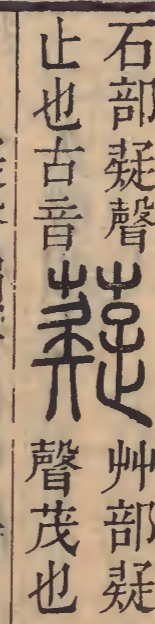 石部疑聲
止也古音
薿
艸部疑
聲茂也